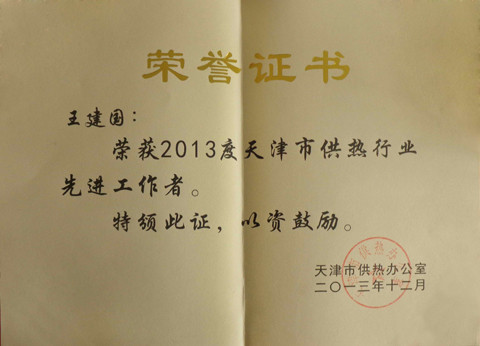 荣誉证书
王建国：
荣获2013度天津市供热行业
先进工作者。
特颁此证，以资鼓励。
天津市供热办公室
二〇一三年十二月